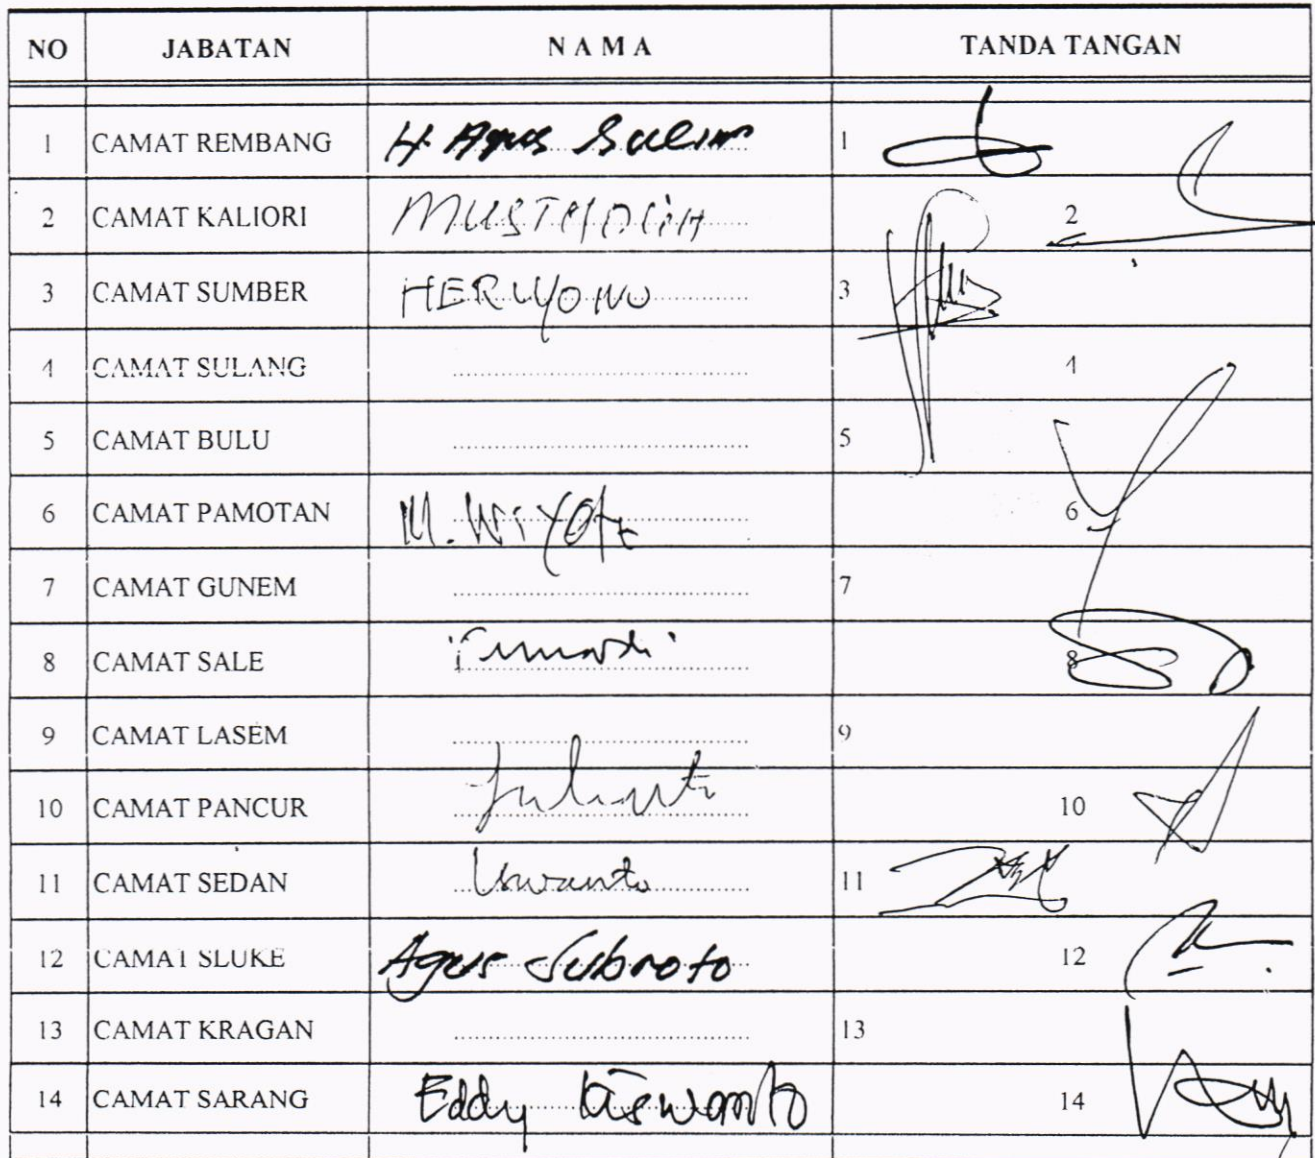 NO JABATAN N A M A TANDA TANGAN
1 CAMAT REMBANG H. Agus Salim 1
2 CAMAT KALIORI 2
3 CAMAT SUMBER HERIYONO 3
4 CAMAT SULANG 4
5 CAMAT BULU 5
6 CAMAT PAMOTAN M. WIYOTO 6
7 CAMAT GUNEM 7
8 CAMAT SALE 8
9 CAMAT LASEM 9
10 CAMAT PANCUR 10
11 CAMAT SEDAN 11
12 CAMAT SLUKE Agus Subroto 12
13 CAMAT KRAGAN 13
14 CAMAT SARANG Eddy Kiswanto 14